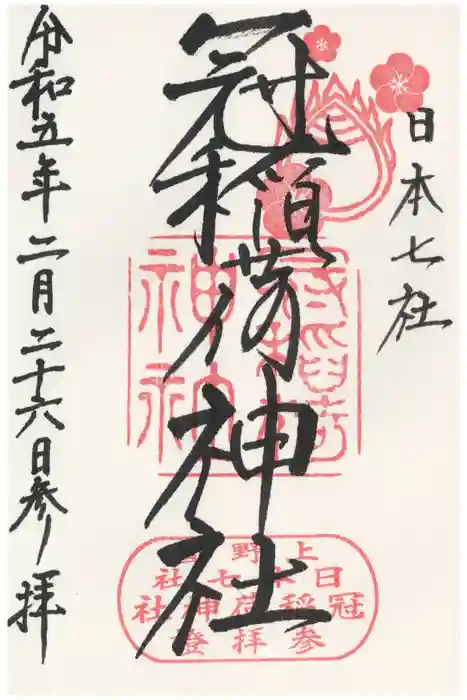 日本七社
冠稲荷神社
令和五年二月二十六日参拝
冠稲荷神社
上野國
日本七社
冠稲荷神社
参拝證